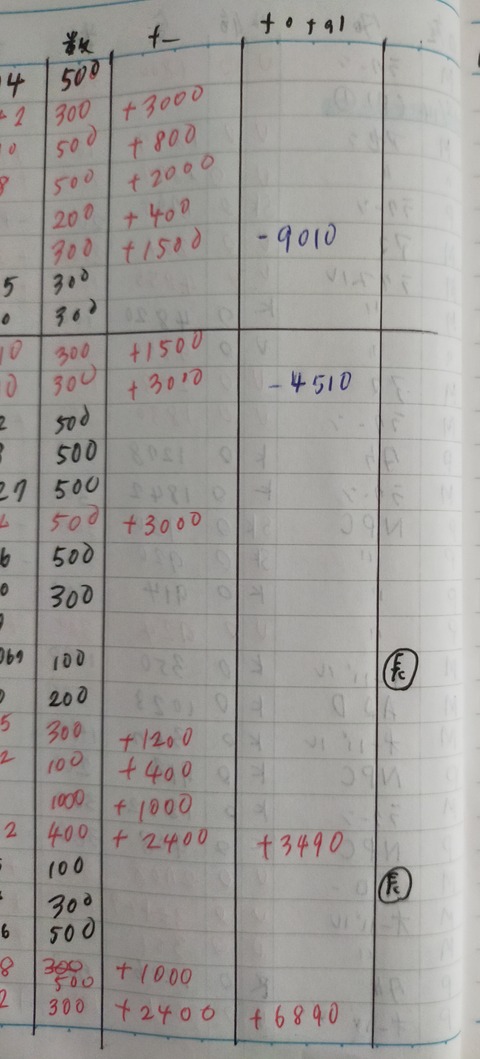 +- total
04 500
2 300 +3000
0 500 +800
8 500 +2000
200 +400
300 +1500 -9010
5 300
0 300
10 300 +1500
0 300 +3000 -4510
2 500
500
27 500
500 +3000
6 500
0 300
069 100
200
5 300 +1200
2 100 +400
1000 +1000
2 400 +2400 +3490
100
300
6 500
8 300 +1000
500
2 300 +2400 +6890